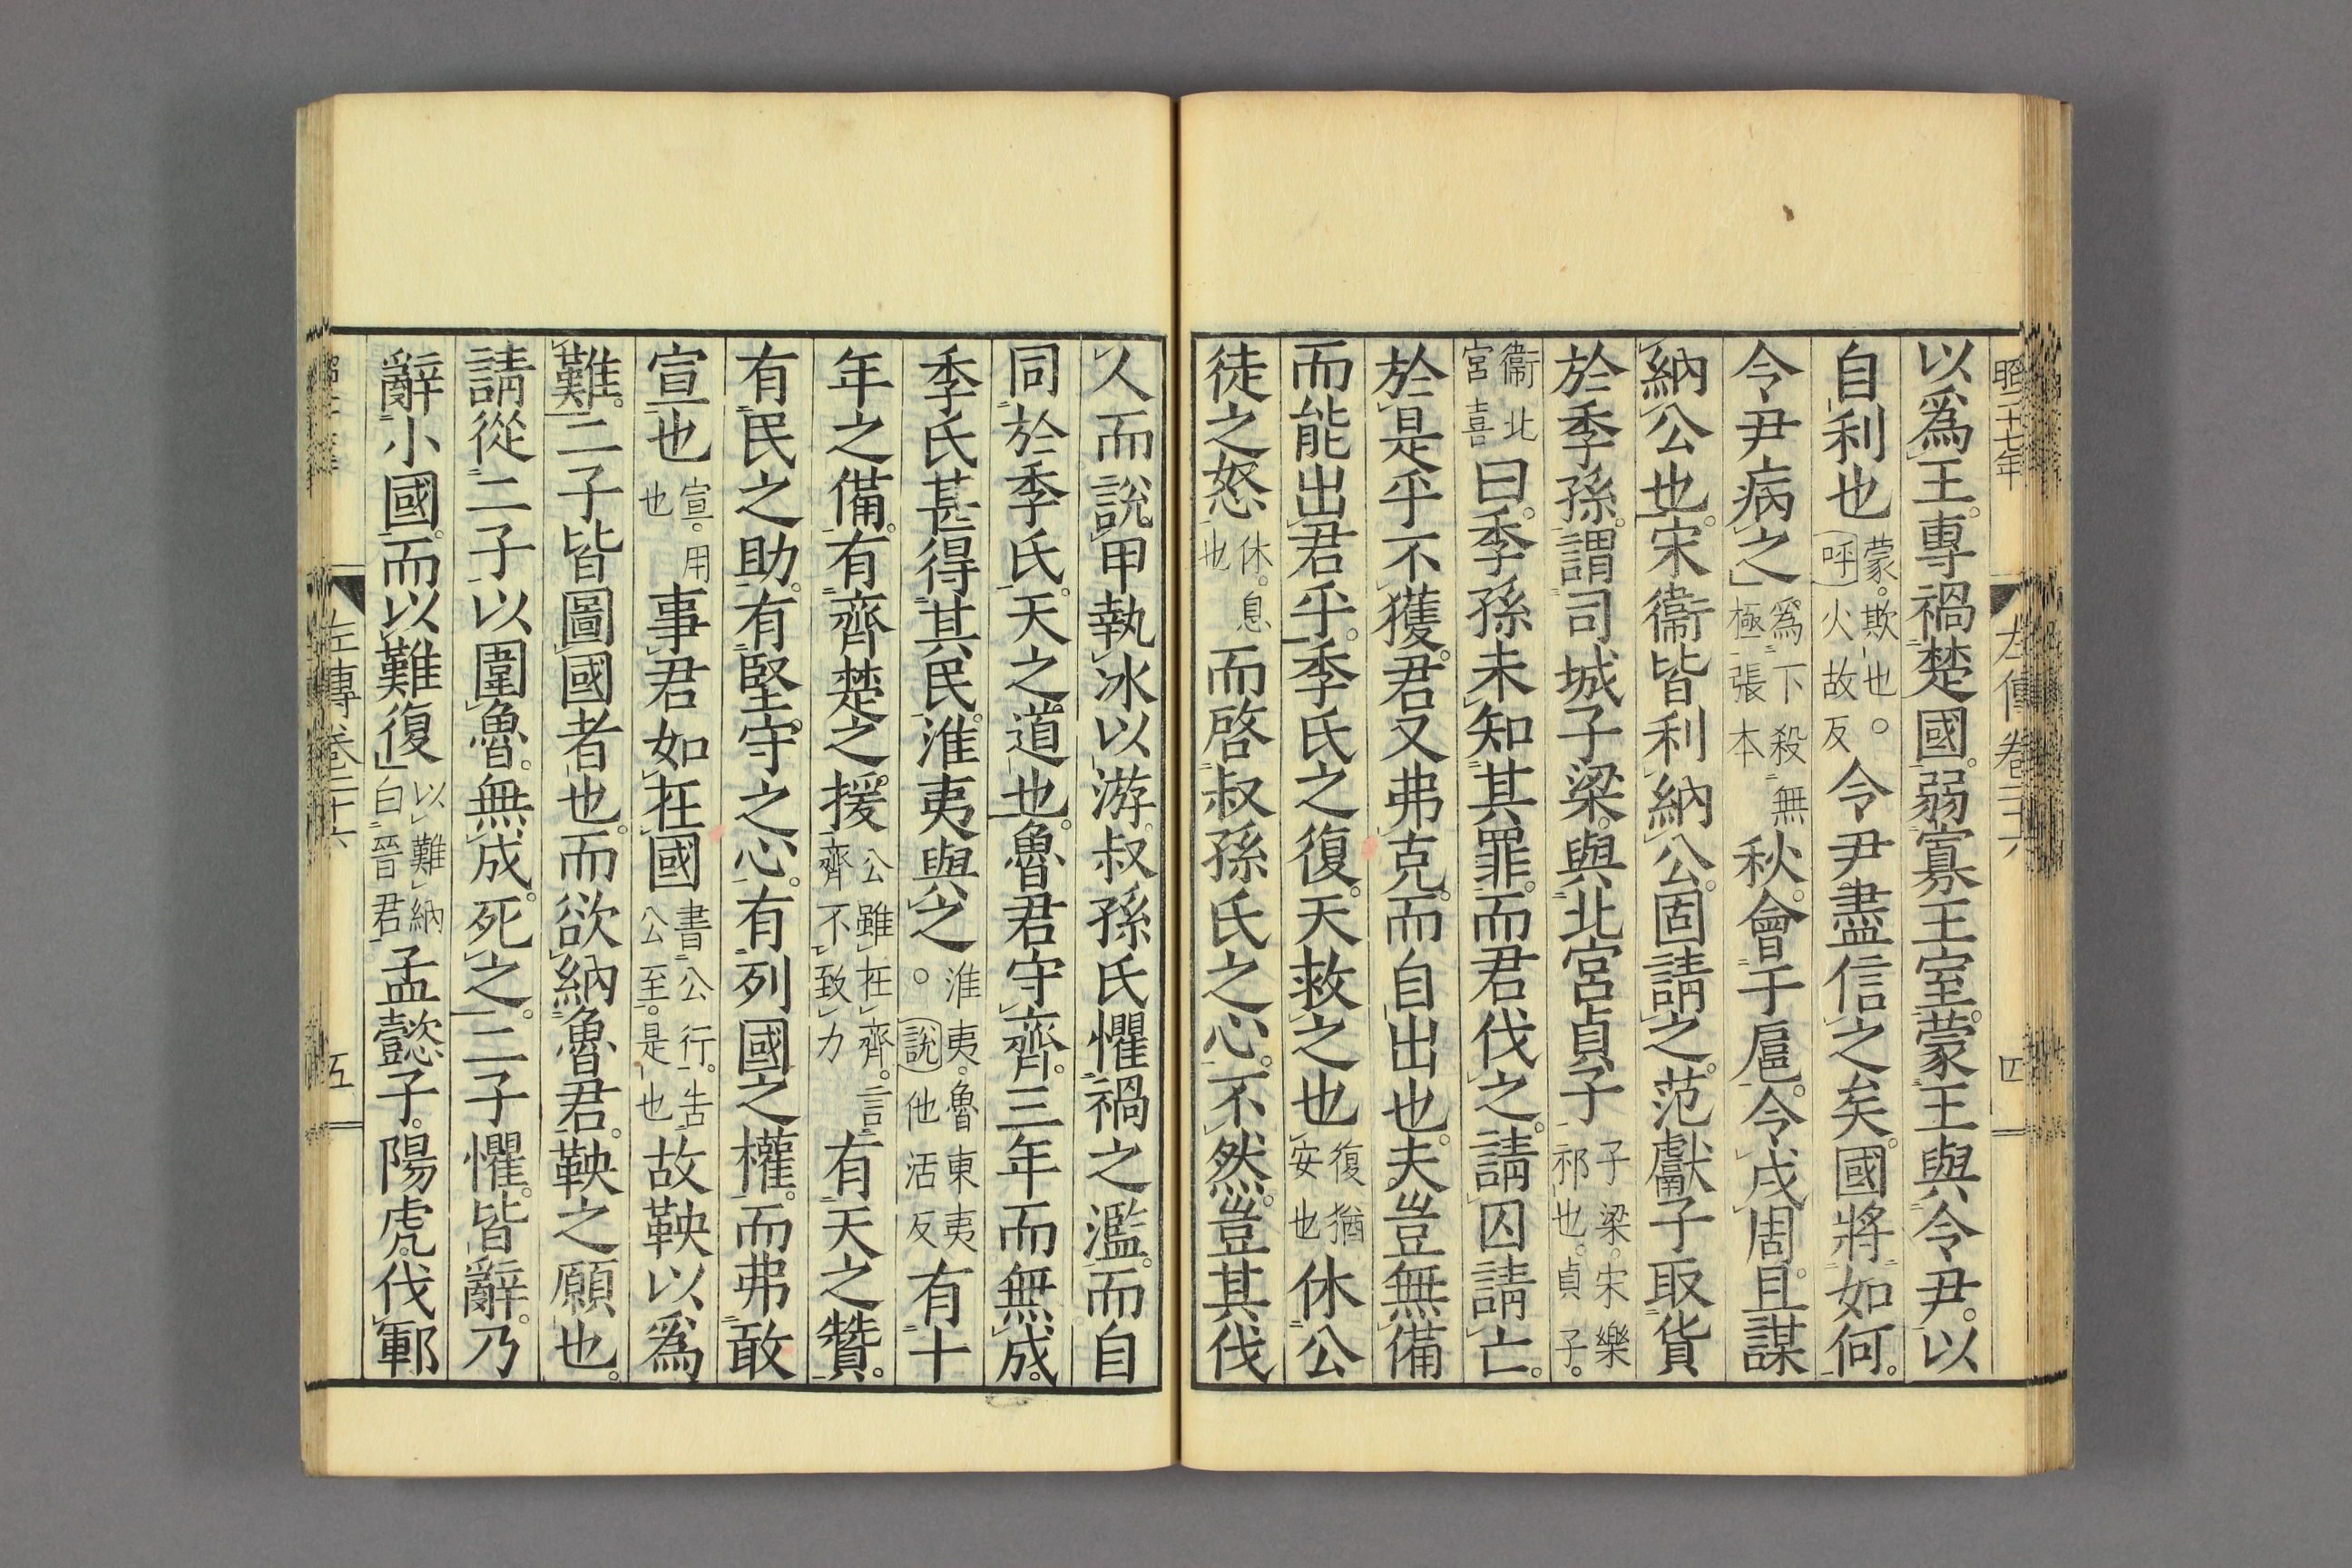 昭二十七年 左傳卷二十六 四
以爲王專禍楚國。弱寡王室。蒙王與令尹。以
自利也蒙。欺也。呼火故反令尹盡信之矣。國將如何。
令尹病之爲下殺無極張本秋。會于扈。令戍周。且謀
納公也。宋衞皆利納公。固請之。范獻子取貨
於季孫。謂司城子梁。與北宮貞子子梁。宋樂祁也。貞子。
衞北宮喜曰。季孫未知其罪。而君伐之。請囚請亡。
於是乎不獲。君又弗克。而自出也。夫豈無備
而能出君乎。季氏之復。天救之也復猶安也休公
徒之怒休。息也而啓叔孫氏之心。不然。豈其伐
人而說甲執冰以游。叔孫氏懼禍之濫。而自
同於季氏。天之道也。魯君守齊。三年而無成。
季氏甚得其民。淮夷與之淮夷。魯東夷。說他活反有十
年之備。有齊楚之援公雖在齊。言齊不致力有天之贊。
有民之助。有堅守之心。有列國之權。而弗敢
宣也宣。用也事君如在國書公行。告公至。是也故鞅以爲
難。二子皆圖國者也。而欲納魯君。鞅之願也。
請從二子以圍魯。無成。死之。二子懼。皆辭。乃
辭小國。而以難復以難納白晉君孟懿子。陽虎。伐鄆
左傳卷二十六 五